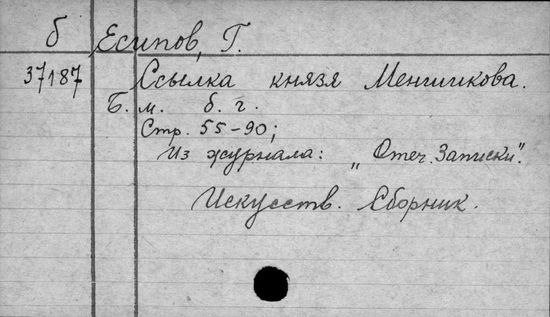 б Есипов, Г.
37187 Ссылка князя Меншикова.
Б. м. б. г.
Стр. 55-90;
Из журнала: „Отеч. Записки".
Искусств. Сборник.